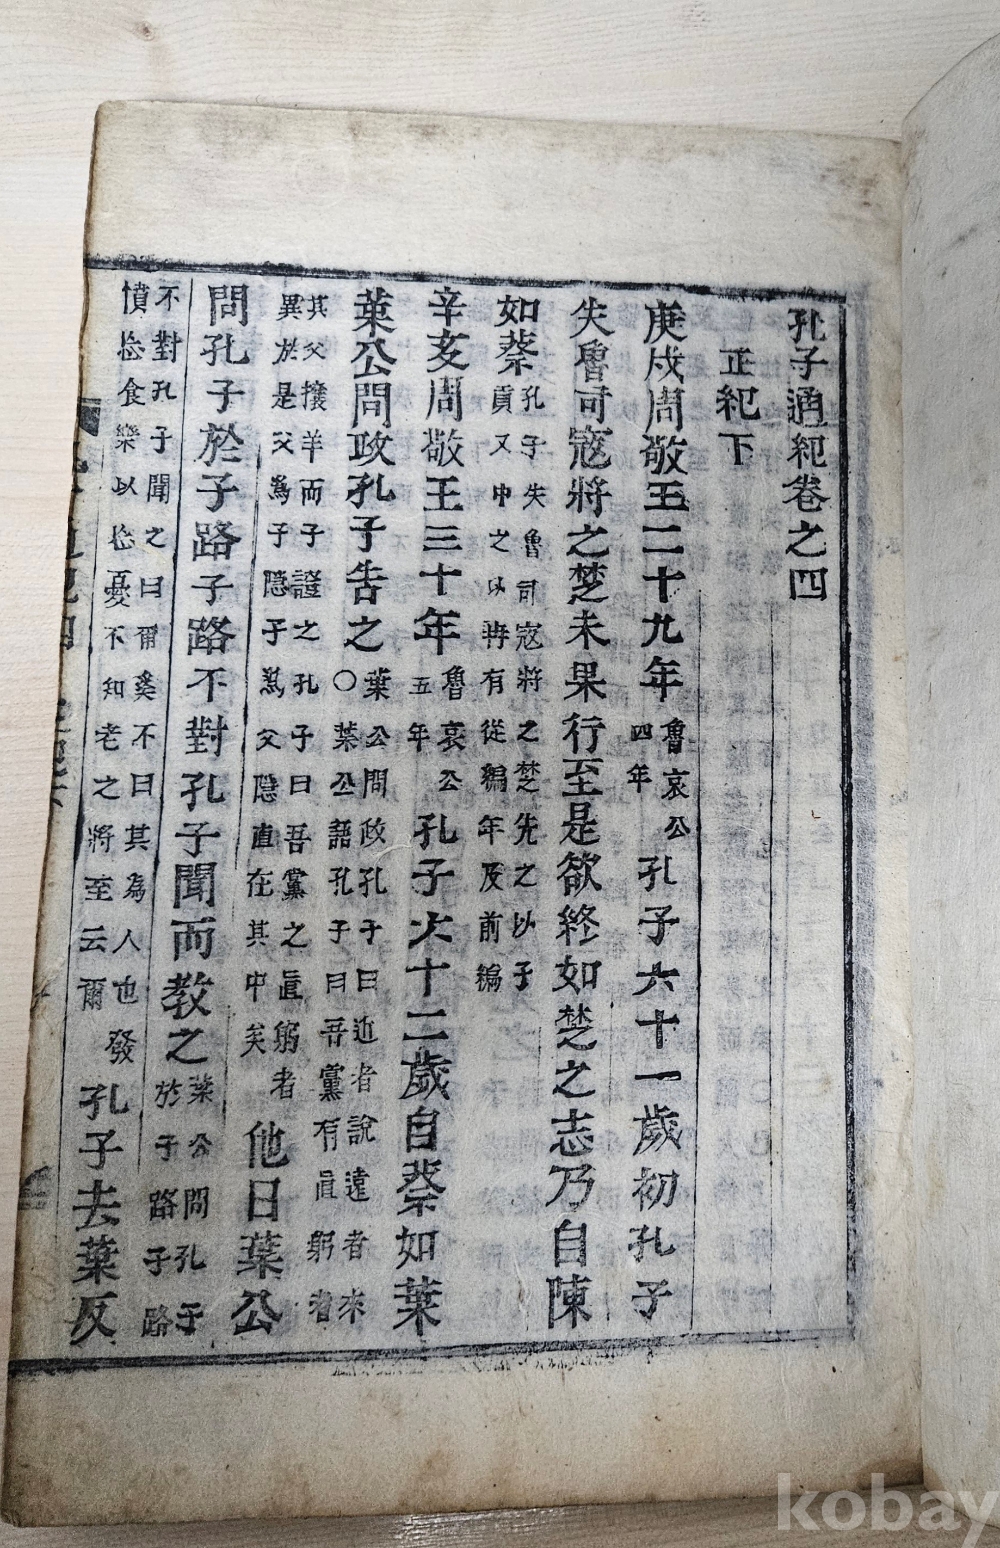 孔子通紀卷之四
正紀下
庚戌周敬王二十九年魯哀公四年孔子六十一歲初孔子
失魯司寇將之楚未果行至是欲終如楚之志乃自陳
如蔡孔子失魯司寇將之楚先之以子貢又申之以冉有從編年及前編
辛亥周敬王三十年魯哀公五年孔子六十二歲自蔡如葉
葉公問政孔子告之葉公問政孔子曰近者說遠者來○葉公語孔子曰吾黨有直躬者
其父攘羊而子證之孔子曰吾黨之直躬者異於是父爲子隱子爲父隱直在其中矣他日葉公
問孔子於子路子路不對孔子聞而教之葉公問孔子於子路子路
不對孔子聞之曰爾奚不曰其為人也發憤忘食樂以忘憂不知老之將至云爾孔子去葉反
kobay